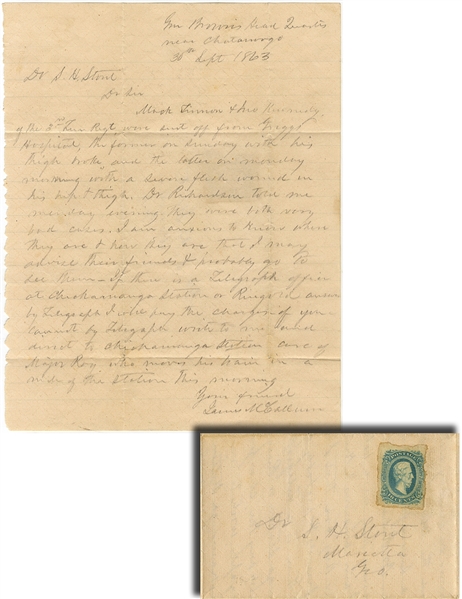 Gen Browns Head Quarters
near Chatanooga
30th Sept 1863
Dr S. H. Stout
Dr Sir
Mack & Jno Kennedy
of the 3rd Ten Regt were sent off from
Hospital, the former on sunday with his
thigh broke, and the latter on monday
morning with a severe flesh wound in
his thigh. Dr Richardson told me
monday evening they were both very
bad cases. I am anxious to know where
they are & how they are that I may
advise their friends & probably go to
see them - if there is a Telegraph office
at Chickamauga Station or Ringold answer
by Telegraph I will pay the charges if you
cannot by Telegraph write to me and
direct to Chickamauga Station care of
Major Ray who moves his train in a
mile of the station this morning
Your friend
POSTAGE
TEN CENTS
Dr S. H. Stout
Marietta
Geo.